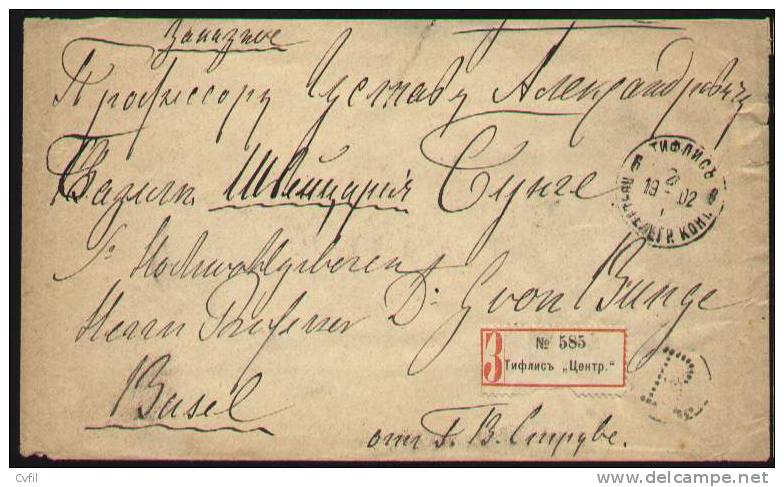 Заказное
Профессору Густаву Александровичу
Базель Швейцарія Бунге
Sr Hochwohlgeboren
Herrn Professor Dr. G von Bunge
Basel
ТИФЛИСЪ
19 02
ПОЧТ.ТЕЛЕГР. КОН.
№ 585
З Тифлисъ „Центр."
R
отъ Г. В. Струве.
Cvfil
delcampe.net